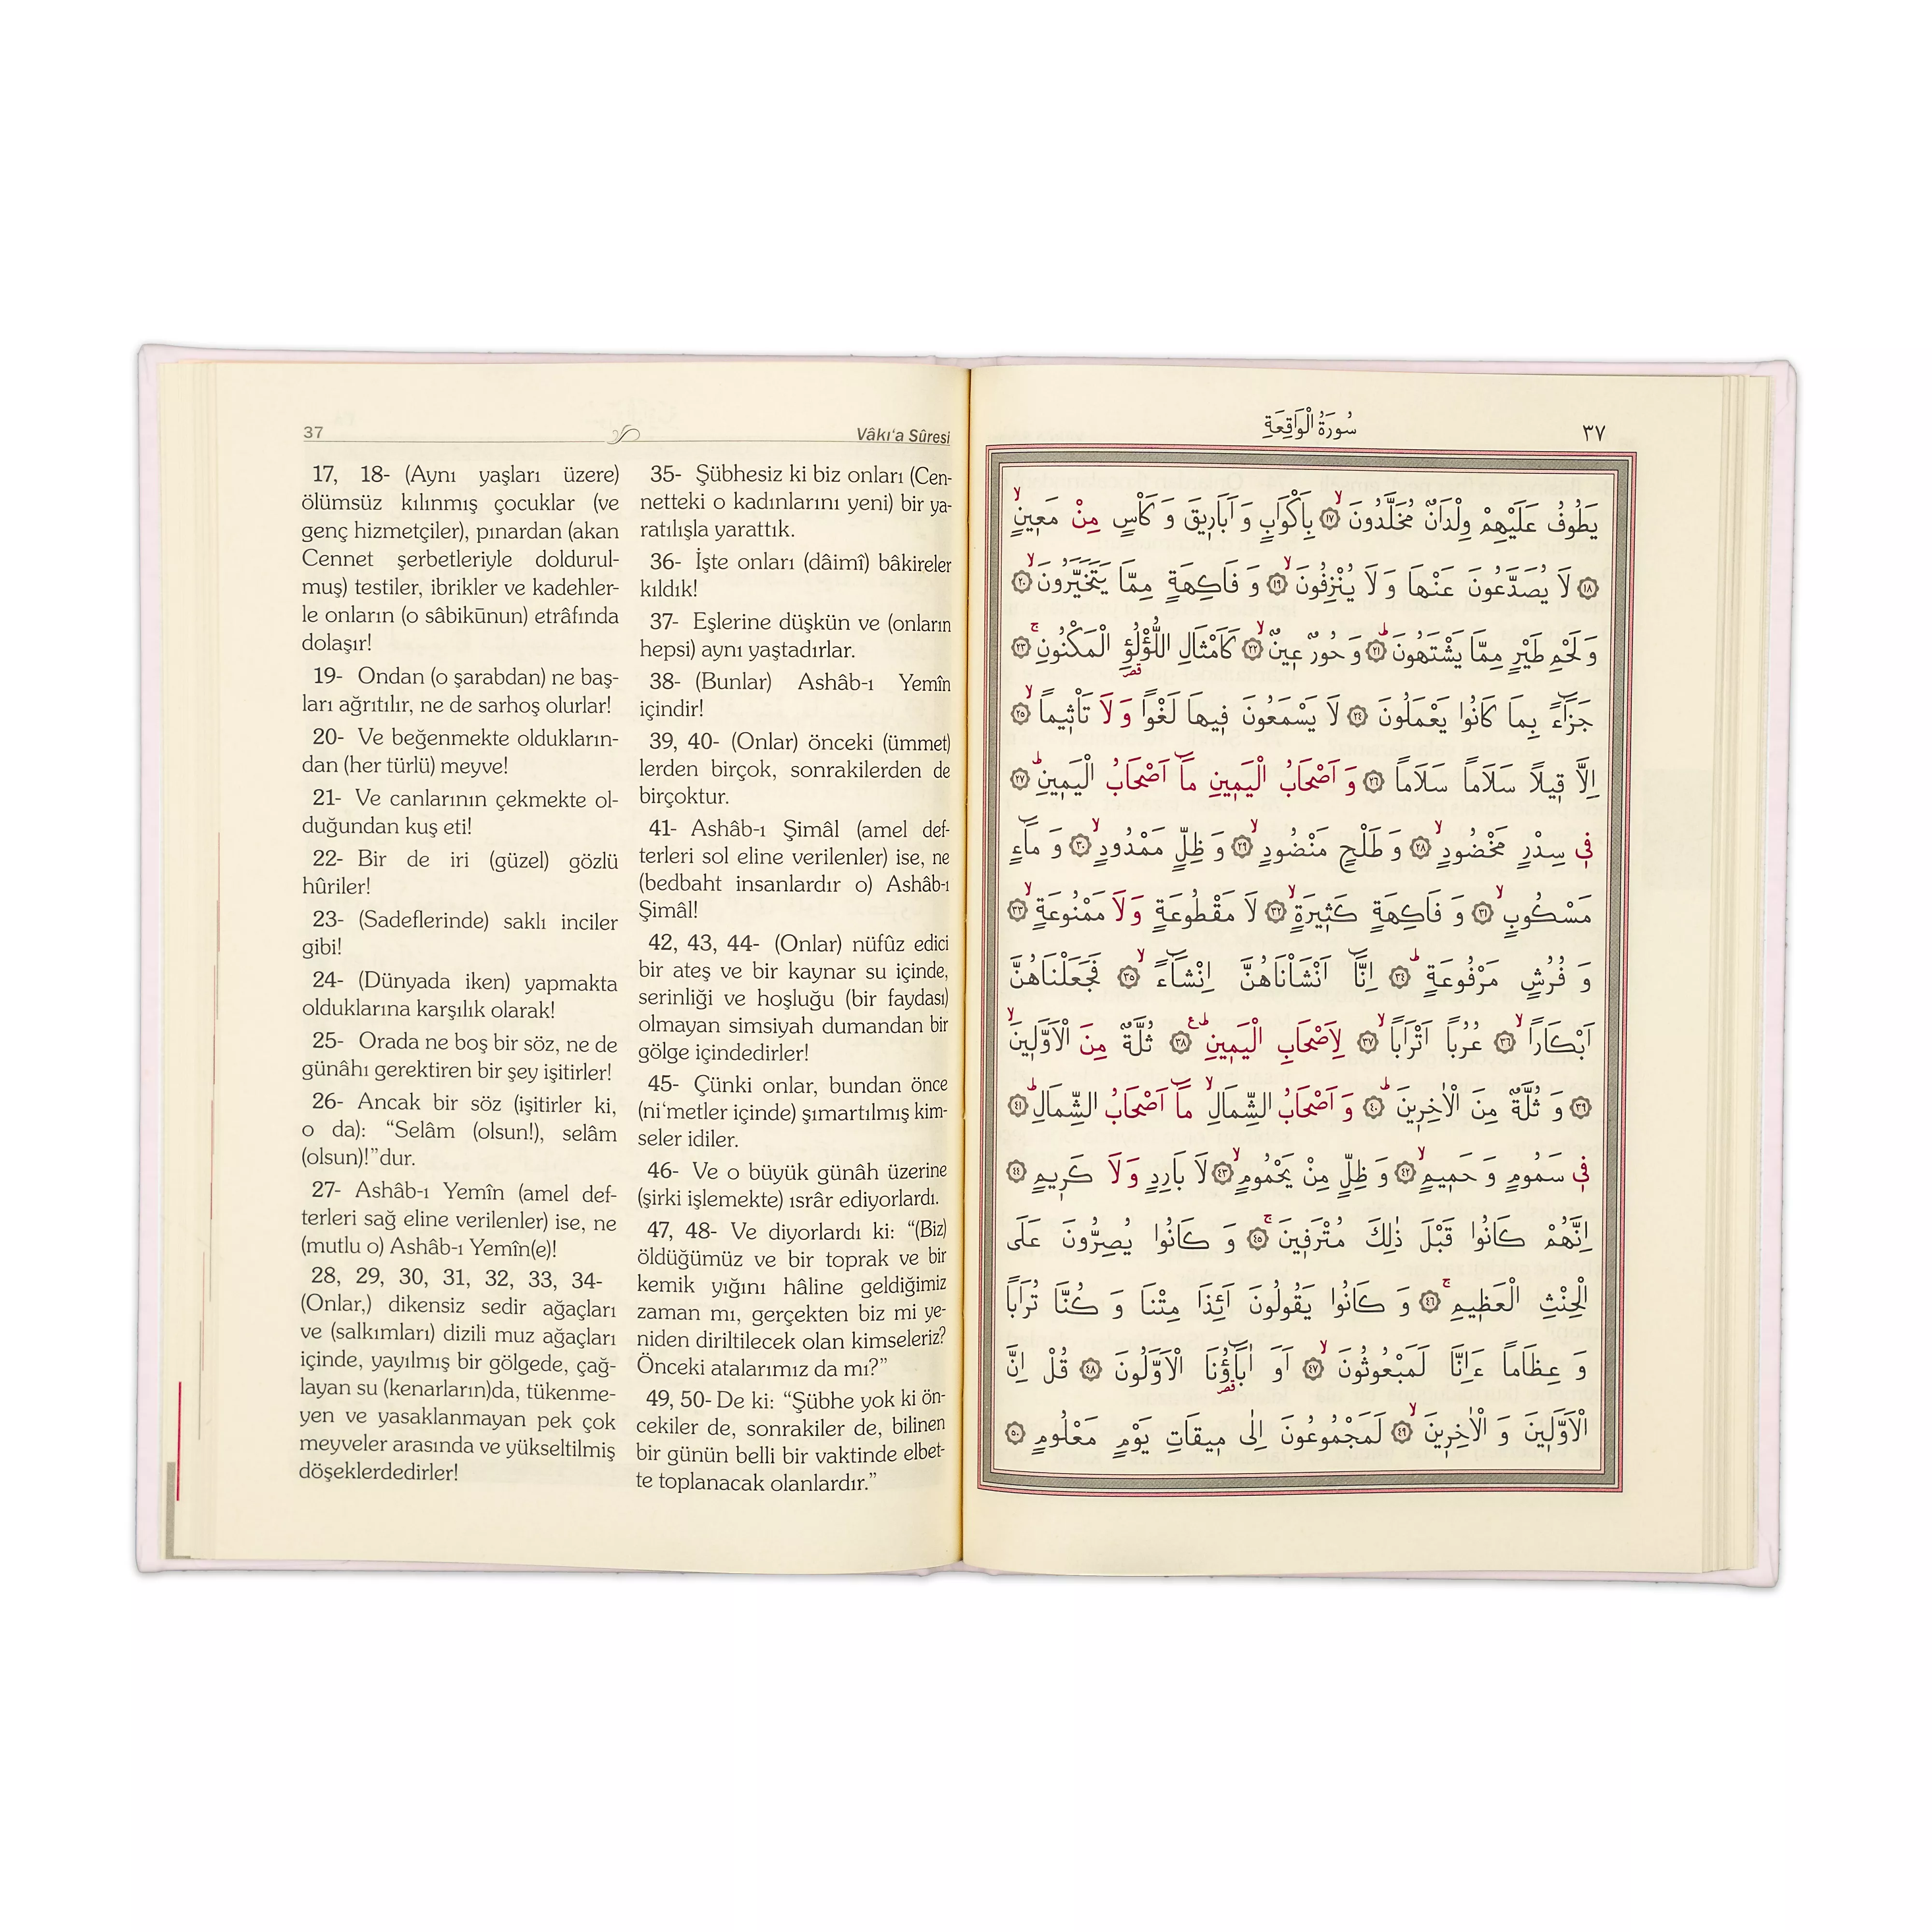 37 Vâkı‘a Sûresi
17, 18- (Aynı yaşları üzere)
ölümsüz kılınmış çocuklar (ve
genç hizmetçiler), pınardan (akan
Cennet şerbetleriyle doldurul-
muş) testiler, ibrikler ve kadehler-
le onların (o sâbikūnun) etrâfında
dolaşır!
19- Ondan (o şarabdan) ne baş-
ları ağrıtılır, ne de sarhoş olurlar!
20- Ve beğenmekte oldukların-
dan (her türlü) meyve!
21- Ve canlarının çekmekte ol-
duğundan kuş eti!
22- Bir de iri (güzel) gözlü
hûriler!
23- (Sadeflerinde) saklı inciler
gibi!
24- (Dünyada iken) yapmakta
olduklarına karşılık olarak!
25- Orada ne boş bir söz, ne de
günâhı gerektiren bir şey işitirler!
26- Ancak bir söz (işitirler ki,
o da): “Selâm (olsun!), selâm
(olsun)!”dur.
27- Ashâb-ı Yemîn (amel def-
terleri sağ eline verilenler) ise, ne
(mutlu o) Ashâb-ı Yemîn(e)!
28, 29, 30, 31, 32, 33, 34-
(Onlar,) dikensiz sedir ağaçları
ve (salkımları) dizili muz ağaçları
içinde, yayılmış bir gölgede, çağ-
layan su (kenarların)da, tükenme-
yen ve yasaklanmayan pek çok
meyveler arasında ve yükseltilmiş
döşeklerdedirler!
35- Şübhesiz ki biz onları (Cen-
netteki o kadınlarını yeni) bir ya-
ratılışla yarattık.
36- İşte onları (dâimî) bâkireler
kıldık!
37- Eşlerine düşkün ve (onların
hepsi) aynı yaştadırlar.
38- (Bunlar) Ashâb-ı Yemîn
içindir!
39, 40- (Onlar) önceki (ümmet)
lerden birçok, sonrakilerden de
birçoktur.
41- Ashâb-ı Şimâl (amel def-
terleri sol eline verilenler) ise, ne
(bedbaht insanlardır o) Ashâb-ı
Şimâl!
42, 43, 44- (Onlar) nüfûz edici
bir ateş ve bir kaynar su içinde,
serinliği ve hoşluğu (bir faydası)
olmayan simsiyah dumandan bir
gölge içindedirler!
45- Çünki onlar, bundan önce
(ni‘metler içinde) şımartılmış kim-
seler idiler.
46- Ve o büyük günâh üzerine
(şirki işlemekte) ısrâr ediyorlardı.
47, 48- Ve diyorlardı ki: “(Biz)
öldüğümüz ve bir toprak ve bir
kemik yığını hâline geldiğimiz
zaman mı, gerçekten biz mi ye-
niden diriltilecek olan kimseleriz?
Önceki atalarımız da mı?”
49, 50- De ki: “Şübhe yok ki ön-
cekiler de, sonrakiler de, bilinen
bir günün belli bir vaktinde elbet-
te toplanacak olanlardır.”
سُورَةُ الْوَاقِعَةِ ٣٧
يَطُوفُ عَلَيْهِمْ وِلْدَانٌ مُخَلَّدُونَۙ ﴿١٧﴾ بِاَكْوَابٍ وَ اَبَارِيقَ وَ كَأْسٍ مِنْ مَعِينٍۙ
﴿١٨﴾ لَا يُصَدَّعُونَ عَنْهَا وَ لَا يُنْزِفُونَۙ ﴿١٩﴾ وَ فَاكِهَةٍ مِمَّا يَتَخَيَّرُونَۙ ﴿٢٠﴾
وَ لَحْمِ طَيْرٍ مِمَّا يَشْتَهُونَۜ ﴿٢١﴾ وَ حُورٌ عِينٌۙ ﴿٢٢﴾ كَاَمْثَالِ اللُّؤْلُؤِ الْمَكْنُونِۚ ﴿٢٣﴾
جَزَٓاءً بِمَا كَانُوا يَعْمَلُونَ ﴿٢٤﴾ لَا يَسْمَعُونَ فِيهَا لَغْوًا وَ لَا تَأْثِيماًۙ ﴿٢٥﴾
اِلَّا قِيلاً سَلَاماً سَلَاماً ﴿٢٦﴾ وَ اَصْحَابُ الْيَمِينِ مَٓا اَصْحَابُ الْيَمِينِۜ ﴿٢٧﴾
فِى سِدْرٍ مَخْضُودٍۙ ﴿٢٨﴾ وَ طَلْحٍ مَنْضُودٍۙ ﴿٢٩﴾ وَ ظِلٍّ مَمْدُودٍۙ ﴿٣٠﴾ وَ مَٓاءٍ
مَسْكُوبٍۙ ﴿٣١﴾ وَ فَاكِهَةٍ كَثِيرَةٍۙ ﴿٣٢﴾ لَا مَقْطُوعَةٍ وَ لَا مَمْنُوعَةٍۙ ﴿٣٣﴾
وَ فُرُشٍ مَرْفُوعَةٍۜ ﴿٣٤﴾ اِنَّٓا اَنْشَأْنَاهُنَّ اِنْشَٓاءًۙ ﴿٣٥﴾ فَجَعَلْنَاهُنَّ
اَبْكَاراًۙ ﴿٣٦﴾ عُرُباً اَتْرَاباًۙ ﴿٣٧﴾ لِاَصْحَابِ الْيَمِينِۜع ﴿٣٨﴾ ثُلَّةٌ مِنَ الْاَوَّلِينَۙ
﴿٣٩﴾ وَ ثُلَّةٌ مِنَ الْاٰخِرِينَۜ ﴿٤٠﴾ وَ اَصْحَابُ الشِّمَالِۙ مَٓا اَصْحَابُ الشِّمَالِۜ ﴿٤١﴾
فِى سَمُومٍ وَ حَمِيمٍۙ ﴿٤٢﴾ وَ ظِلٍّ مِنْ يَحْمُومٍۙ ﴿٤٣﴾ لَا بَارِدٍ وَ لَا كَرِيمٍ ﴿٤٤﴾
اِنَّهُمْ كَانُوا قَبْلَ ذٰلِكَ مُتْرَفِينَۚ ﴿٤٥﴾ وَ كَانُوا يُصِرُّونَ عَلَى
الْحِنْثِ الْعَظِيمِۚ ﴿٤٦﴾ وَ كَانُوا يَقُولُونَ اَئِذَا مِتْنَا وَ كُنَّا تُرَاباً
وَ عِظَاماً ءَاِنَّا لَمَبْعُوثُونَۙ ﴿٤٧﴾ اَوَ اٰبَٓاؤُنَا الْاَوَّلُونَ ﴿٤٨﴾ قُلْ اِنَّ
الْاَوَّلِينَ وَ الْاٰخِرِينَۙ ﴿٤٩﴾ لَمَجْمُوعُونَ اِلٰى مِيقَاتِ يَوْمٍ مَعْلُومٍ ﴿٥٠﴾